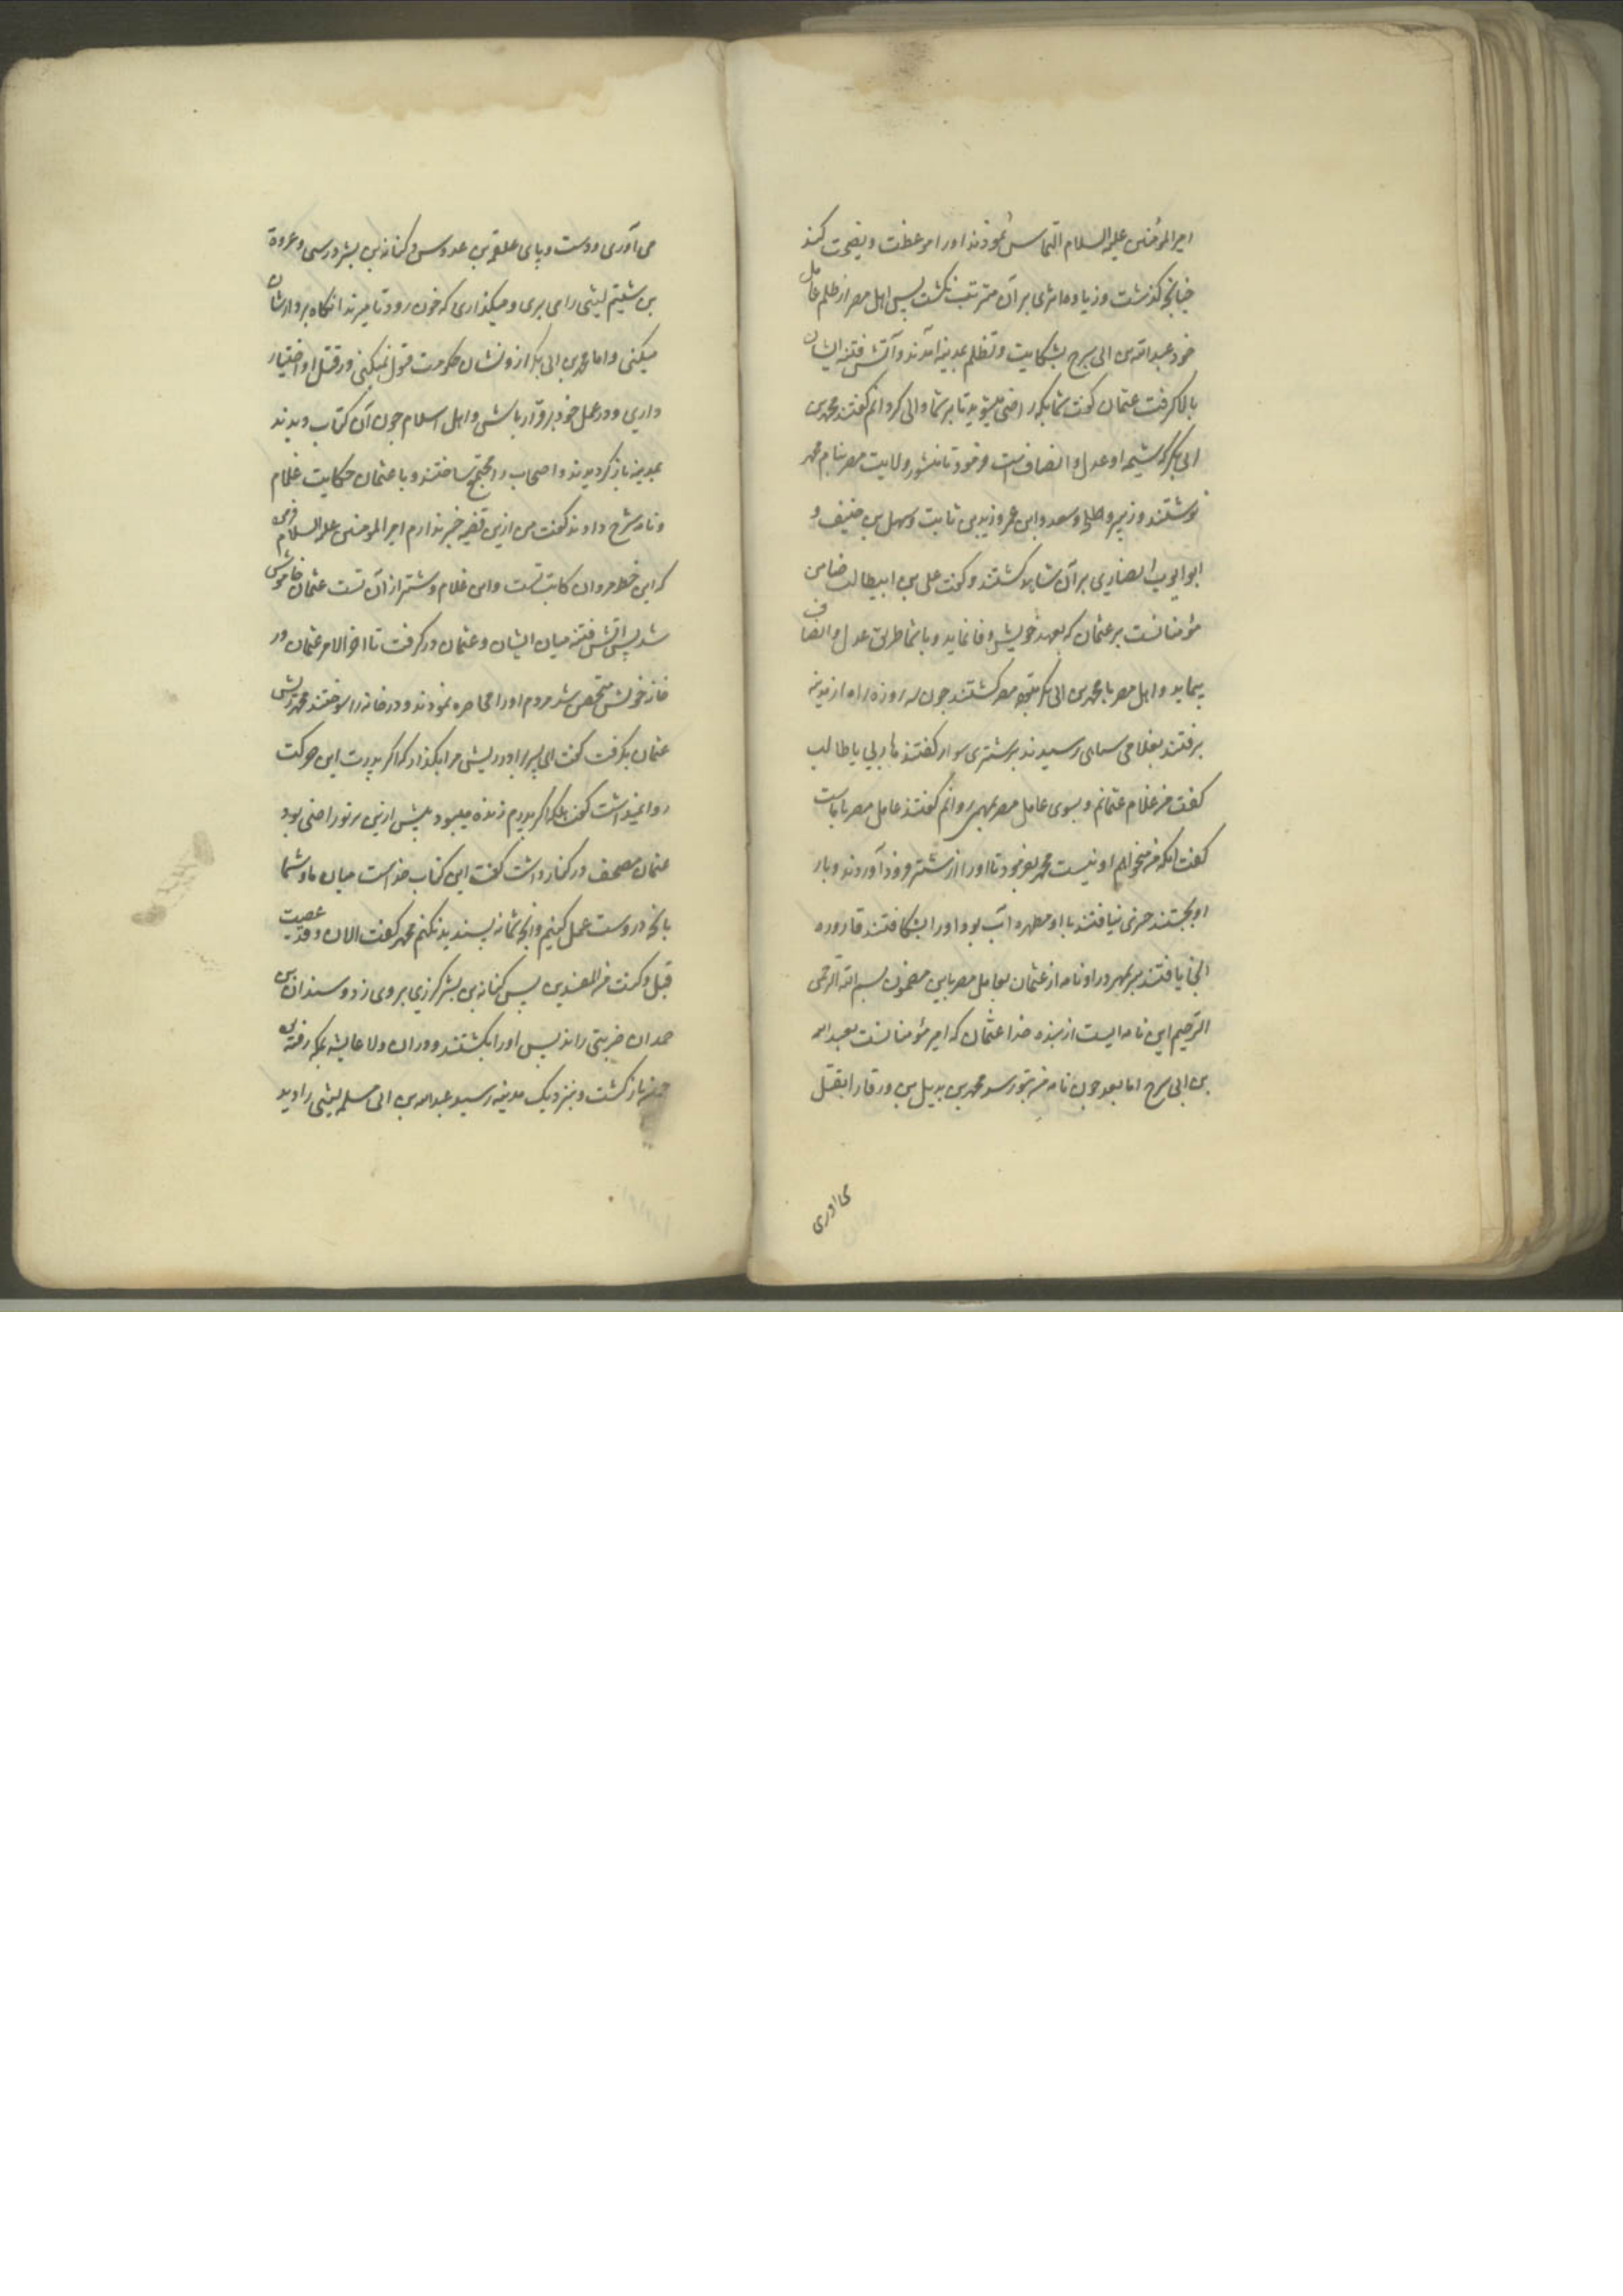 امیرالمؤمنین علیه السلام التماس نمودند اورا موعظت و نصیحت کند
چنانچه کذشت و زیاده اثری بر آن مترتب نکشت پس اهل مصر از ظلم عامل
خود عبدالله بن ابی سرح بشکایت و تظلم بمدینه آمدند و آتش فتنه ایشان
بالا کرفت عثمان کفت شما بکه راضی میشوید تا بر شما والی کردانم کفتند محمد بن
ابی بکر که شیمه او عدل و انصافست فرمود تا منشور ولایت مصر بنام محمد
نوشتند و زبیر و طلحه و سعد و ابن عمر و زید بن ثابت و سهل بن حنیف و
ابو ایوب انصاری بر آن شاهد کشتند و کفت علی بن ابیطالب ضامن
مؤمنانست بر عثمان که بعهد خویش وفا نماید و با شما طریق عدل و انصاف
پیماید و اهل مصر با محمد بن ابی بکر متوجه مصر کشتند چون سه روزه راه از مدینه
برفتند بغلامی سیاهی رسیدند بر شتری سوار کفتند هاربی یا طالب
کفت من غلام عثمانم و بسوی عامل مصر بمهمی روانم کفتند عامل مصر با ماست
کفت انکه من میخواهم او نیست محمد بفرمود تا اورا از شتر فرود آوردند و بار
او بجستند چیزی نیافتند با او مطهره آب بود اورا بشکافتند قاروره
انجا یافتند سر بمهر در او نامه از عثمان بعامل مصر باین مضمون بسم الله الرحمن
الرحیم این نامه ایست از بنده خدا عثمان که امیر مؤمنانست بعبدالله
بن ابی سرح اما بعد چون نامه من بتو رسد محمد بن بدیل بن ورقا را بقتل
می اوری
می آوری و دست و پای علقمة بن عدوس و کنانه بن بشر و رسی و عروة
بن شیتم لیثی را می بری و میکذاری که خون رود تا میرند انکاه بر دارشان
میکنی و اما محمد بن ابی بکر از و نشان حکومت قبول نمیکنی و در قتل او اختیار
داری و در عمل خود برقرار باش و اهل اسلام چون آن کتاب دیدند
بمدینه باز کردیدند و اصحاب را مجتمع ساختند و با عثمان حکایت غلام
و نامه شرح دادند کفت من ازین قضیه خبر ندارم امیر المومنین علیه السلام فرمود
که این خط مروان کاتب تست و این غلام و شتر از آن تست عثمان خاموش
شد پس آتش فتنه میان ایشان و عثمان در کرفت تا اخر الامر عثمان در
خانه خویش متحصن شد مردم اورا محاصره نمودند و در خانه را سوختند محمد ریش
عثمان بکرفت کفت ای پسر برادر ریش مرا بکذار که اکر پدرت این حرکت
روا نمیداشت کفت بلکه اکر پدرم زنده میبود پیش ازین بر تو راضی بود
عثمان مصحف در کنار داشت کفت این کتاب خداست میان ما و شما
بانچه در وست عمل کنیم وانچه شما نه پسندید نکنم محمد کفت الان و قد عصیت
قبل و کنت من المفسدین پس کنانه بن بشر کرزی بروی زد و سندان بن
حمدان ضربتی راند پس اورا بکشتند و در ان ولا عایشه بمکه رفته بود
چون باز کشت و بنزدیک مدینه رسید عبدالله بن ابی مسلم لیثی را دید